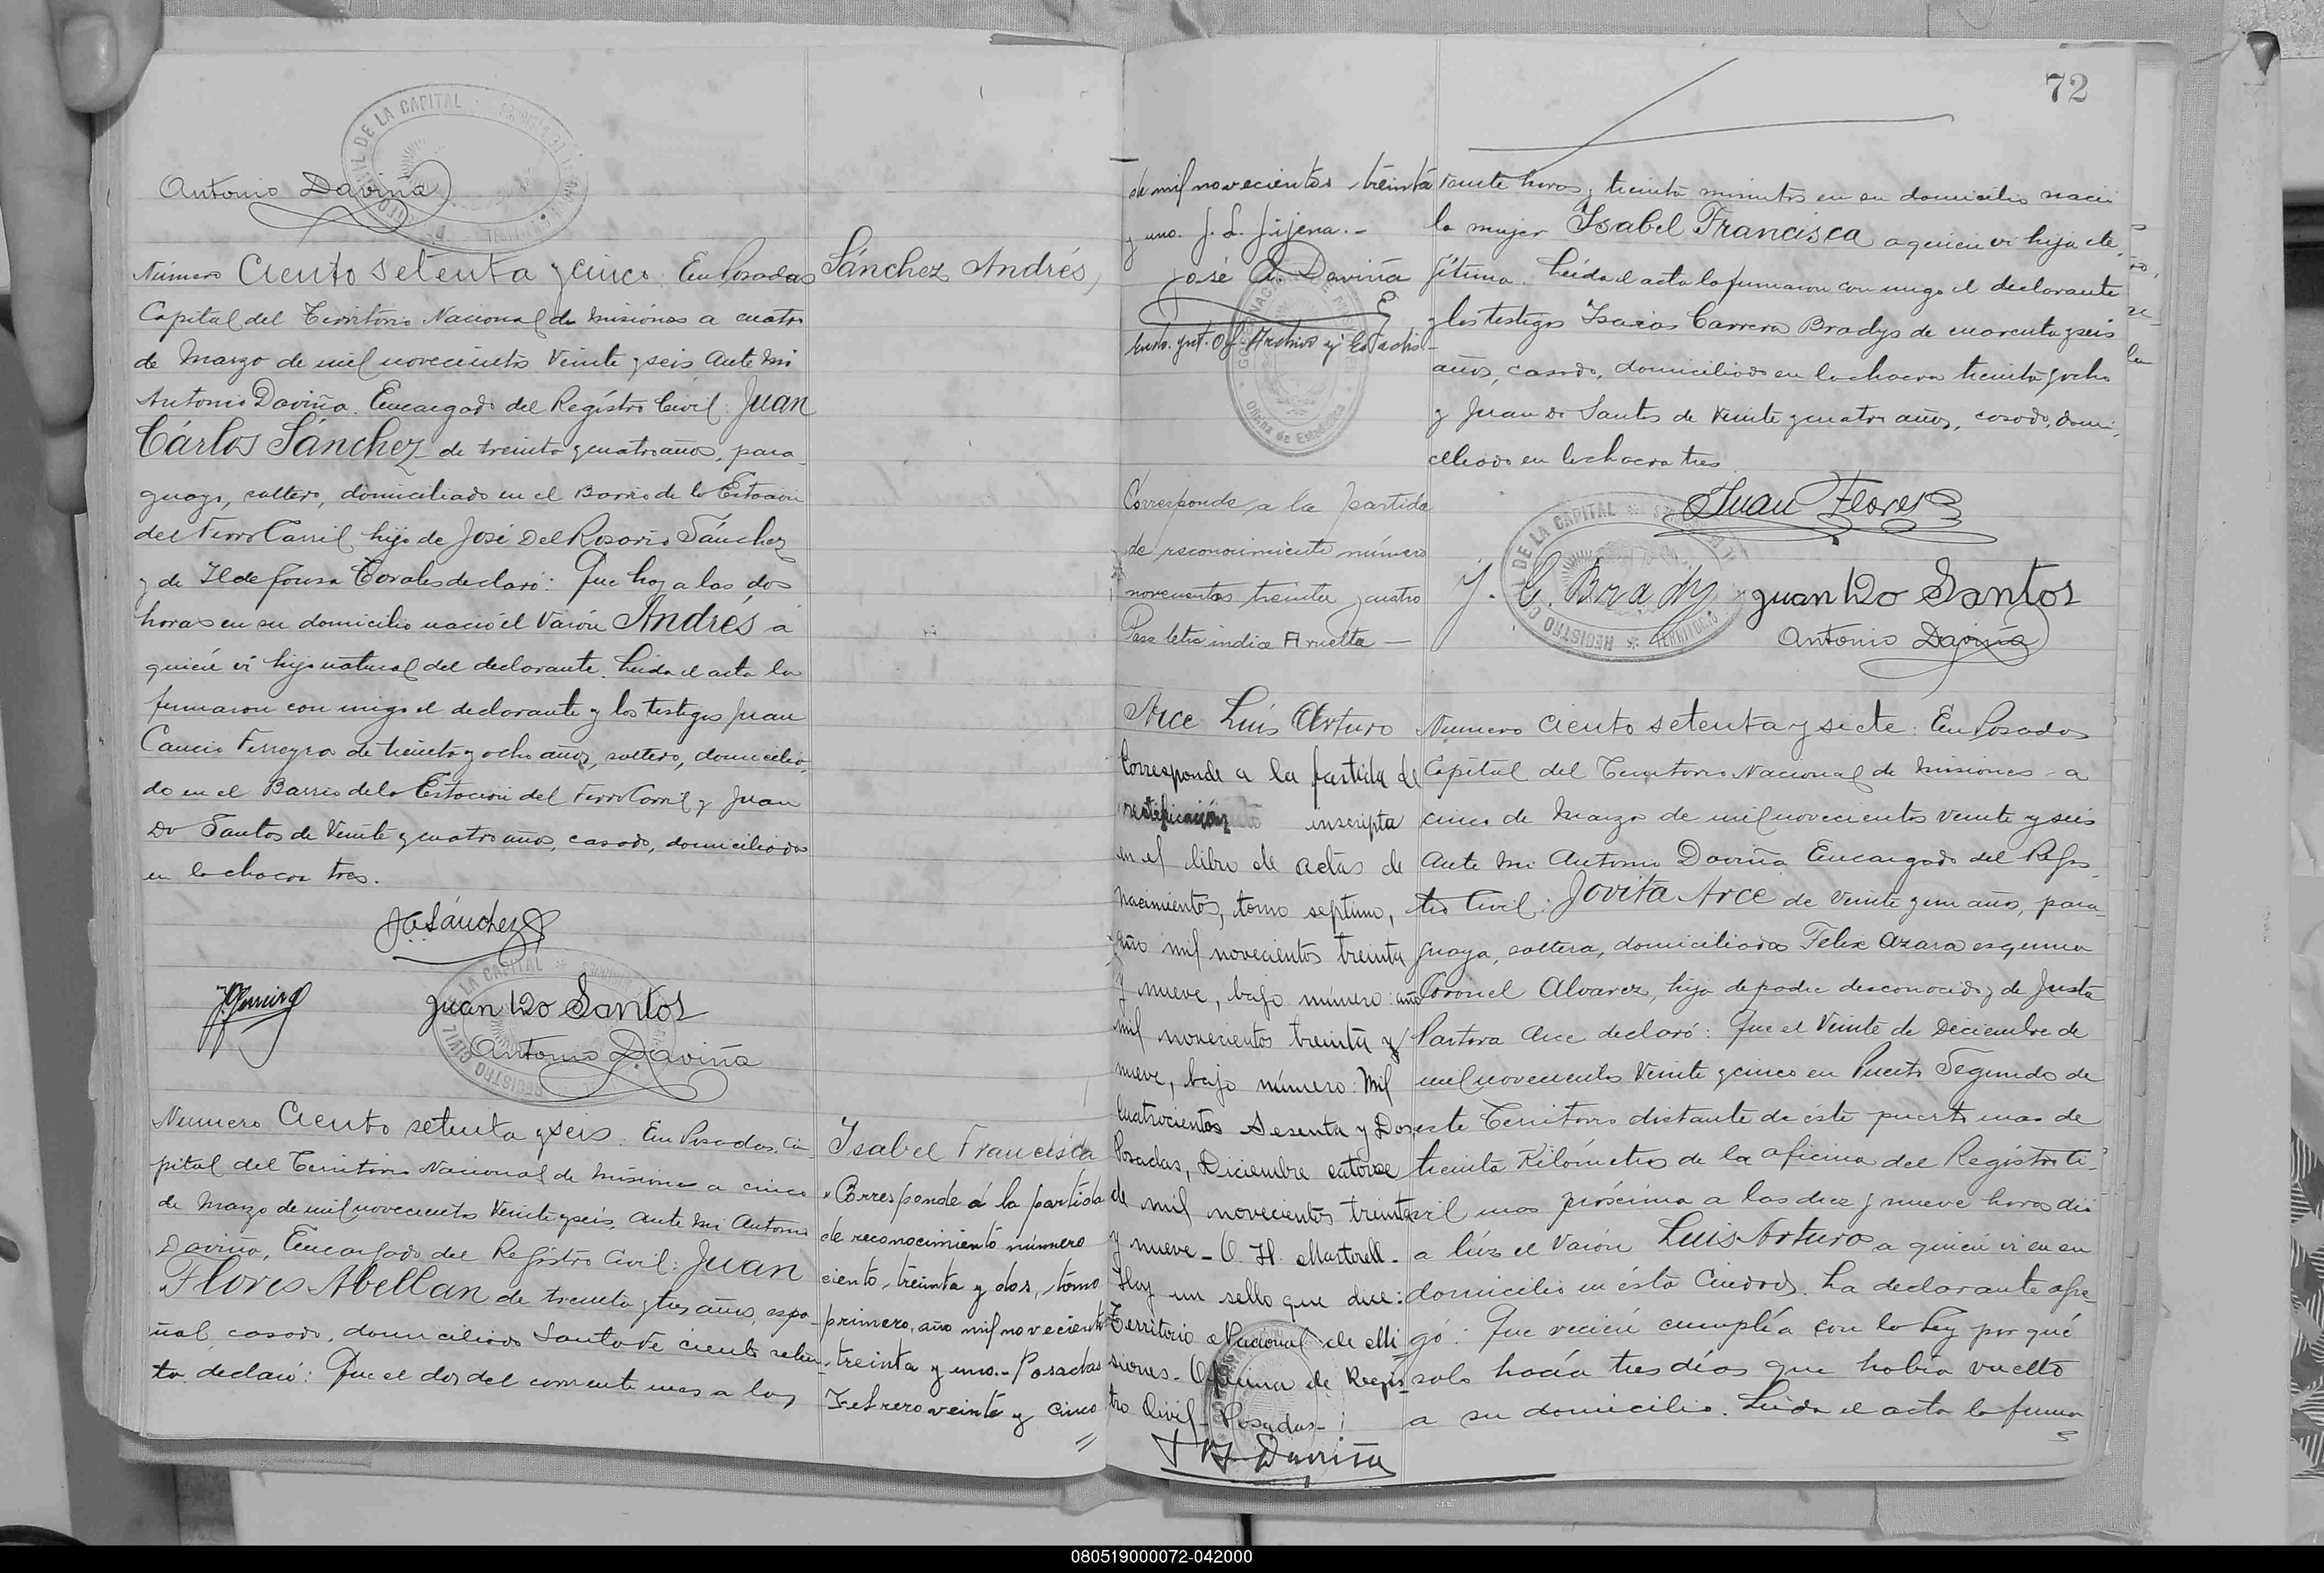 Antonio Daviña
Número Ciento setenta y cinco. En Posadas
Capital del Territorio Nacional de Misiones a cuatro
de Marzo de mil novecientos Veinte y seis Ante mi
Antonio Daviña. Encargado del Registro Civil: Juan
Cárlos Sánchez de treinta y cuatro años, para-
guayo, soltero, domiciliado en el Barrio de la Estación
del Ferro Carril hijo de José Del Rosario Sánchez
y de Ildefonsa Corales declaró: Que hoy a las dos
horas en su domicilio nació el Varón Andrés a
quién vi hijo natural del declarante. Leida el acta la
firmaron con migo el declarante y los testigos Juan
Cancio Ferreyra de treinta y ocho años, soltero, domicilia-
do en el Barrio de la Estación del Ferro Carril y Juan
Do Santos de Veinte y cuatro años, casado, domiciliado
en la chacra tres.
Sánchez Andrés,
JC Sánchez
Juan Do Santos
Antonio Daviña
REGISTRO CIVIL DE LA CAPITAL
Numero Ciento setenta y seis. En Posadas Ca-
pital del Territorio Nacional de Misiones a cinco
de Marzo de mil novecientos Veinte y seis, ante mi Antonio
Daviña, Encargado del Registro Civil: Juan
Flores Abellan de treinta y tres años, espa-
ñol, casado, domiciliado Santa Fé ciento seten-
ta declaró: Que el dos del corriente mes a las
Isabel Francisca
"Corresponde á la partida
de reconocimiento número
ciento treinta y dos, tomo
primero, año mil novecientos
treinta y uno.- Posadas
Febrero veinte y cinco
72
de mil novecientos treinta
y uno. J. L. Jijena.-
José A. Daviña
Oficina de Estadistica
Corresponde a la partida
de reconocimiento número
novecientos treinta y cuatro
Pasa letra indice A vuelta —
veinte horas y treinta minutos en su domicilio nació
la mujer Isabel Francisca a quién vi hija le-
jítima. Leida el acta la firmaron con migo el declarante
y los testigos Isaias Carrera Bradys de cuarenta y seis
años, casado, domiciliado en la chacra treinta y ocho
y Juan Do Santos de Veinte y cuatro años, casado, domi-
ciliado en la chacra tres
Juan Flores
J. C. Brady. Juan Do Santos
Antonio Daviña
REGISTRO CIVIL DE LA CAPITAL
Arce Luis Arturo
Corresponde a la partida de
rectificación inscripta
en el libro de actas de
nacimientos, tomo septimo,
año mil novecientos treinta
y nueve, bajo número: año
mil novecientos treinta y
nueve, bajo número: Mil
cuatrocientos Sesenta y Dos
Posadas, Diciembre catorce
de mil novecientos treinta
y nueve - O. H. Martorell.
Hay un sello que dice:
Territorio Nacional de Mi
siones - Oficina de Regis
tro Civil - Posadas -
Daviña
Numero Ciento setenta y siete: En Posadas
Capital del Territorio Nacional de Misiones a
cinco de Marzo de mil novecientos Veinte y seis
Ante mi Antonio Daviña Encargado del Regis-
tro Civil: Jovita Arce de Veinte y un años, para-
guaya, soltera, domiciliada Felix Azara esquina
Coronel Alvarez, hija de padre desconocido y de Justa
Pastora Arce declaró: Que el Veinte de Diciembre de
mil novecientos Veinte y cinco en Puerto Segundo de
este Territorio distante de éste puerto mas de
treinta Kilómetros de la oficina del Registro Ci-
vil mas próxima a las diez y nueve horas dió
a lúz el Varón Luis Arturo a quién vi en su
domicilio en ésta Ciudad. La declarante agre-
gó: Que recién cumplía con la Ley por qué
solo hacía tres días que había vuelto
a su domicilio. Leida el acta la firma
080519000072-042000